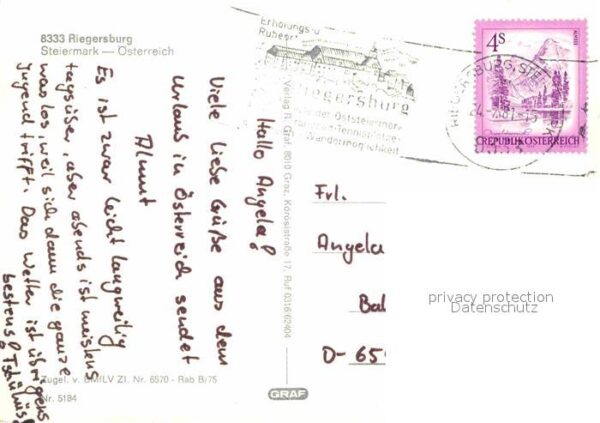 8333 Riegersburg
Steiermark — Österreich
Hallo Angela!
Viele liebe Grüße aus dem
Urlaub in Österreich sendet
Almut
Es ist zwar leicht langweilig
tagsüber, aber abends ist meistens
was los, weil sich dann die ganze
Jugend trifft. Das Wetter ist übrigens
bestens! Tschüüüs!
Zugel. v. BMfLV Zl. Nr. 6570 - Rab B/75
Nr. 5184
Verlag R. Graf, 8010 Graz, Körösistraße 17, Ruf 0316/62404
GRAF
Erholungs-u
Riegersburg
in der Oststeiermar
Wandermöglichkeit
4S
ALMSEE
REPUBLIK ÖSTERREICH
Frl.
Angela
D- 65
privacy protection
Datenschutz